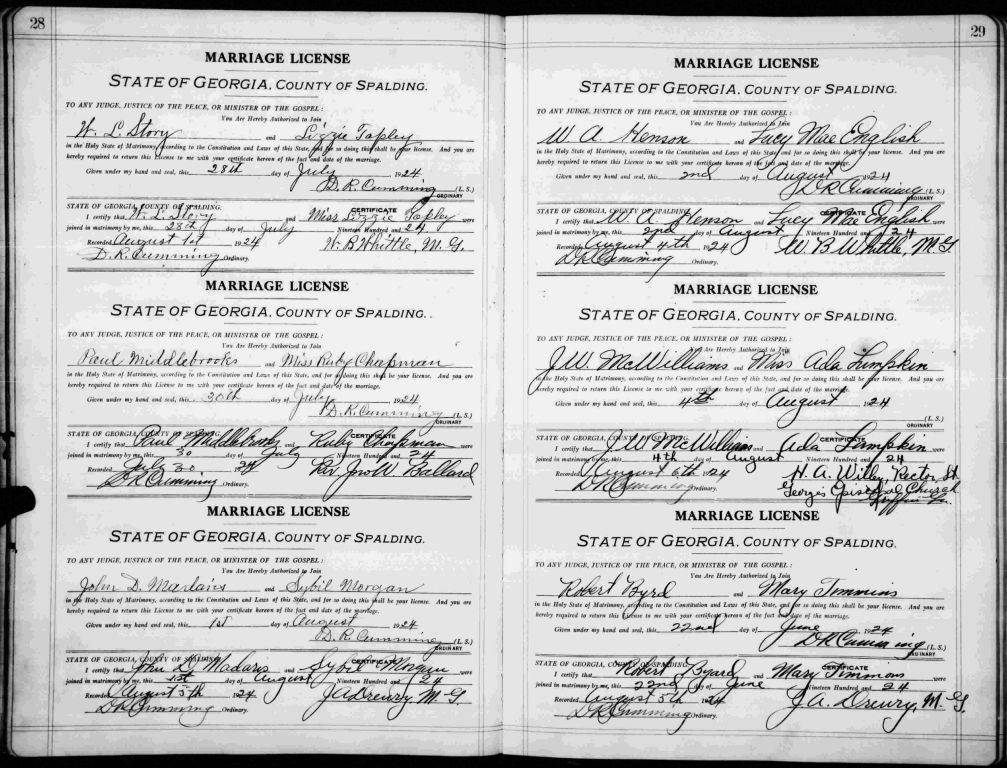 28
MARRIAGE LICENSE
STATE OF GEORGIA, COUNTY OF SPALDING.
TO ANY JUDGE, JUSTICE OF THE PEACE, OR MINISTER OF THE GOSPEL:
You Are Hereby Authorized to Join
W. L. Story and Lizzie Tapley
in the Holy State of Matrimony, according to the Constitution and Laws of this State, and for so doing this shall be your license. And you are
hereby required to return this License to me with your certificate hereon of the fact and date of the marriage.
Given under my hand and seal, this 28th day of July 1924
D. R. Cumming (L. S.)
ORDINARY
CERTIFICATE
STATE OF GEORGIA, COUNTY OF SPALDING.
I certify that W. L. Story and Miss Lizzie Tapley were
joined in matrimony by me, this 28th day of July Nineteen Hundred and 24
Recorded August 1st 1924 W. B Whittle, M. G.
D. R. Cumming Ordinary.
MARRIAGE LICENSE
STATE OF GEORGIA, COUNTY OF SPALDING.
TO ANY JUDGE, JUSTICE OF THE PEACE, OR MINISTER OF THE GOSPEL:
You Are Hereby Authorized to Join
Paul Middlebrooks and Miss Ruby Chapman
in the Holy State of Matrimony, according to the Constitution and Laws of this State, and for so doing this shall be your license. And you are
hereby required to return this License to me with your certificate hereon of the fact and date of the marriage.
Given under my hand and seal, this 30th day of July 1924
D. R. Cumming (L. S.)
ORDINARY
CERTIFICATE
STATE OF GEORGIA, COUNTY OF SPALDING.
I certify that Paul Middlebrooks and Ruby Chapman were
joined in matrimony by me, this 30 day of July Nineteen Hundred and 24
Recorded July 30, 1924 Rev. Jno W. Ballard
D R Cumming Ordinary.
MARRIAGE LICENSE
STATE OF GEORGIA, COUNTY OF SPALDING.
TO ANY JUDGE, JUSTICE OF THE PEACE, OR MINISTER OF THE GOSPEL:
You Are Hereby Authorized to Join
John D. Madaris and Sybil Morgan
in the Holy State of Matrimony, according to the Constitution and Laws of this State, and for so doing this shall be your license. And you are
hereby required to return this License to me with your certificate hereon of the fact and date of the marriage.
Given under my hand and seal, this 1st day of August 1924
D. R. Cumming (L. S.)
ORDINARY
CERTIFICATE
STATE OF GEORGIA, COUNTY OF SPALDING.
I certify that John D. Madaris and Sybil Morgan were
joined in matrimony by me, this 1st day of August Nineteen Hundred and 24
Recorded August 5th 1924 J A Drewry M. G.
D R Cumming Ordinary.
29
MARRIAGE LICENSE
STATE OF GEORGIA, COUNTY OF SPALDING.
TO ANY JUDGE, JUSTICE OF THE PEACE, OR MINISTER OF THE GOSPEL:
You Are Hereby Authorized to Join
W. A. Henson and Lucy Mae English
in the Holy State of Matrimony, according to the Constitution and Laws of this State, and for so doing this shall be your license. And you are
hereby required to return this License to me with your certificate hereon of the fact and date of the marriage.
Given under my hand and seal, this 2nd day of August 1924
D R Cumming (L. S.)
ORDINARY
CERTIFICATE
STATE OF GEORGIA, COUNTY OF SPALDING.
I certify that W. A. Henson and Lucy Mae English were
joined in matrimony by me, this 2nd day of August Nineteen Hundred and 24
Recorded August 4th 1924 W. B Whittle, M. G
D R Cumming Ordinary.
MARRIAGE LICENSE
STATE OF GEORGIA, COUNTY OF SPALDING.
TO ANY JUDGE, JUSTICE OF THE PEACE, OR MINISTER OF THE GOSPEL:
You Are Hereby Authorized to Join
J.W. McWilliams and Miss Ada Lumpkin
in the Holy State of Matrimony, according to the Constitution and Laws of this State, and for so doing this shall be your license. And you are
hereby required to return this License to me with your certificate hereon of the fact and date of the marriage.
Given under my hand and seal, this 4th day of August 1924
(L. S.)
ORDINARY
CERTIFICATE
STATE OF GEORGIA, COUNTY OF SPALDING.
I certify that J W McWilliams and Ada Lumpkin were
joined in matrimony by me, this 4th day of August Nineteen Hundred and 24
Recorded August 6th 1924 H. A. Willey, Rector, St
D R Cumming Ordinary. George's Episcopal Church
Griffin Ga.
MARRIAGE LICENSE
STATE OF GEORGIA, COUNTY OF SPALDING.
TO ANY JUDGE, JUSTICE OF THE PEACE, OR MINISTER OF THE GOSPEL:
You Are Hereby Authorized to Join
Robert Byrd and Mary Timmins
in the Holy State of Matrimony, according to the Constitution and Laws of this State, and for so doing this shall be your license. And you are
hereby required to return this License to me with your certificate hereon of the fact and date of the marriage.
Given under my hand and seal, this 22nd day of June 1924
D R Cumming (L. S.)
ORDINARY
CERTIFICATE
STATE OF GEORGIA, COUNTY OF SPALDING.
I certify that Robert Byard and Mary Timmons were
joined in matrimony by me, this 22nd day of June Nineteen Hundred and 24
Recorded August 5th 1924 J. A. Drewry, M. G.
D R Cumming Ordinary.